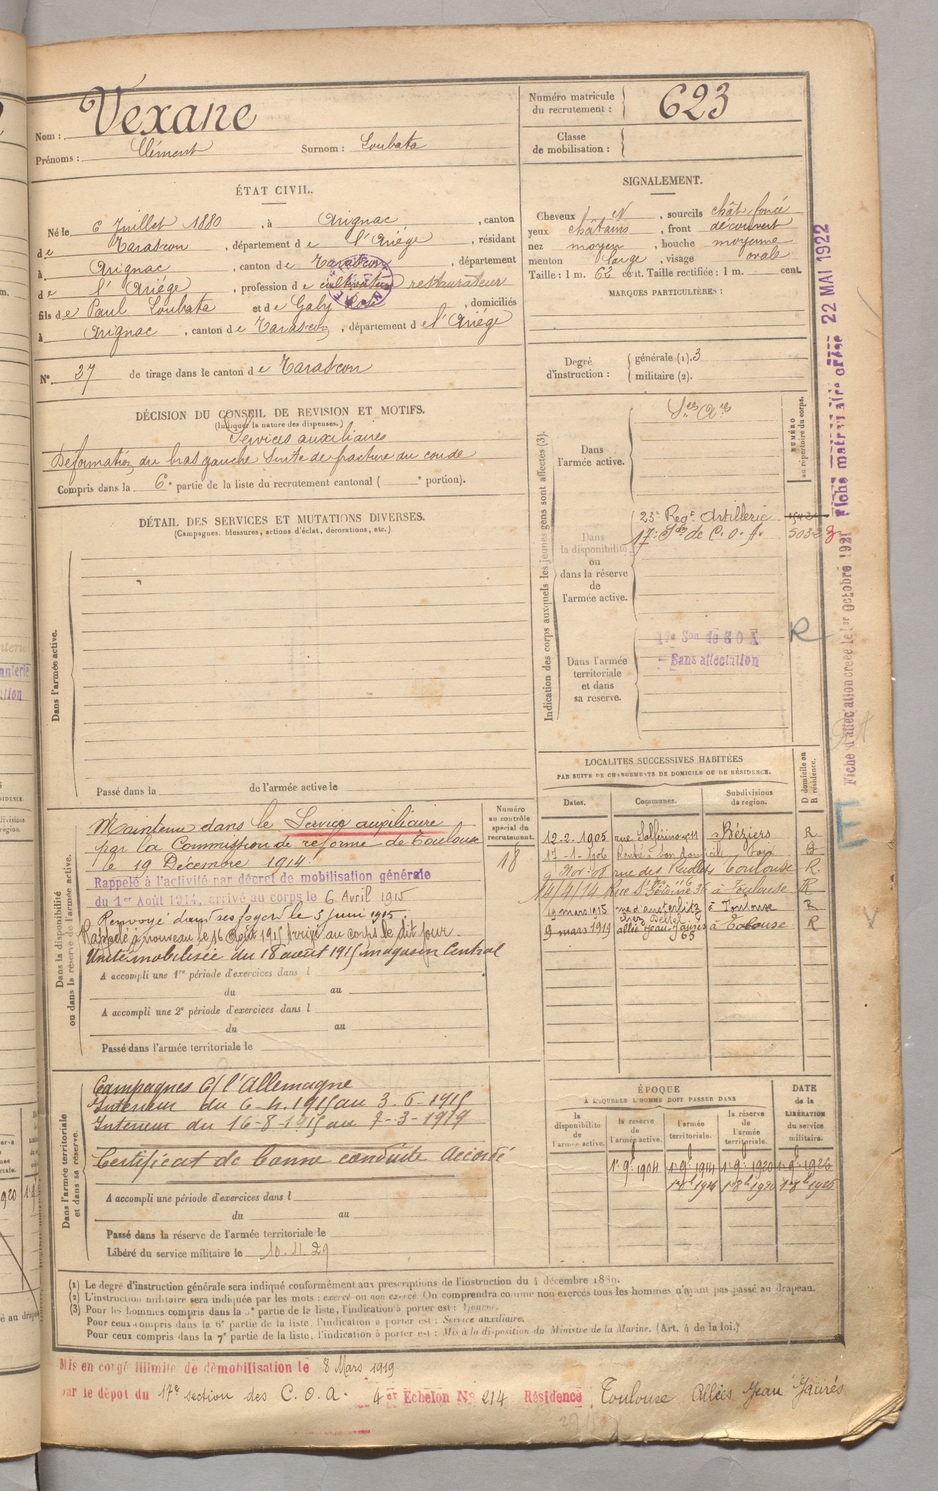 Nom : Vexane
Prénoms : Clément Surnom : Loubata
Numéro matricule du recrutement : 623
Classe de mobilisation :
ÉTAT CIVIL.
Né le 6 Juillet 1880, à Arignac, canton
de Tarascon, département de l'Ariége, résidant
à Arignac, canton de Tarascon, département
de l'Ariége, profession de cultivateur restaurateur
fils de Paul Loubata et de Gaby, domiciliés
à Arignac, canton de Tarascon, département de l'Ariége
N° 27 de tirage dans le canton de Tarascon
SIGNALEMENT.
Cheveux et, sourcils chât. foncé
yeux châtains, front découvert
nez moyen, bouche moyenne
menton large, visage ovale
Taille : 1 m. 62 cent. Taille rectifiée : 1 m. cent.
MARQUES PARTICULIÈRES :
Degré d'instruction : générale (1). 3
militaire (2).
DÉCISION DU CONSEIL DE REVISION ET MOTIFS.
(Indiquer la nature des dispenses.)
Services auxiliaires
Déformation du bras gauche Suite de fracture du coude
Compris dans la 6e partie de la liste du recrutement cantonal ( e portion).
DÉTAIL DES SERVICES ET MUTATIONS DIVERSES.
(Campagnes, blessures, actions d'éclat, décorations, etc.)
Dans l'armée active.
Passé dans la de l'armée active le
Indication des corps auxquels les jeunes gens sont affectés (3).
NUMÉRO au répertoire du corps.
Dans l'armée active.
Dans la disponibilité ou dans la réserve de l'armée active.
23e Regt Artillerie
17e Son de C. O. A.
Dans l'armée territoriale et dans sa réserve.
17e Son de C O A
Sans affectation
R
Fiche d'affectation créée le 1er Octobre 1921
Fiche matriculaire créée 22 MAI 1922
LOCALITÉS SUCCESSIVES HABITÉES
PAR SUITE DE CHANGEMENTS DE DOMICILE OU DE RÉSIDENCE.
Dates. Communes. Subdivisions de région. D domicile ou R résidence.
12-2-1905 Béziers R
17-1-1906 Foix
9 Nov 08 Toulouse R
14/4/14 Toulouse R
19 mars 1915 rue d'austerlitz 3 à Toulouse R
9 mars 1919 allée Jean Jaurès 65 à Toulouse R
Dans la disponibilité ou dans la réserve de l'armée active.
Numéro au contrôle spécial du recrutement.
18
Maintenu dans le Service auxiliaire
par la Commission de réforme de Toulouse
le 19 Décembre 1914.
Rappelé à l'activité par décret de mobilisation générale
du 1er Août 1914, arrivé au corps le 6 Avril 1915
Renvoyé dans ses foyers le 3 juin 1915.
Rappelé à nouveau le 16 Août 1915 Arrivé au corps le dit jour.
Unité mobilisée du 18 août 1915 magasin Central
A accompli une 1re période d'exercices dans l
du au
A accompli une 2e période d'exercices dans l
du au
Passé dans l'armée territoriale le
Dans l'armée territoriale et dans sa réserve.
Campagnes C/ l'Allemagne
Intérieur du 6-4-1915 au 3-6-1915
Intérieur du 16-8-1915 au 7-3-1919
Certificat de bonne conduite Accordé
A accompli une période d'exercices dans l
du au
Passé dans la réserve de l'armée territoriale le
Libéré du service militaire le 10.11.29
ÉPOQUE
À LAQUELLE L'HOMME DOIT PASSER DANS
la disponibilité de l'armée active.
la réserve de l'armée active.
l'armée territoriale.
la réserve de l'armée territoriale.
DATE de la LIBÉRATION du service militaire.
1er 9e 1904 1er 9e 1914 1er 9e 1920 1er 9e 1926
(1) Le degré d'instruction générale sera indiqué conformément aux prescriptions de l'instruction du 4 décembre 1889.
(2) L'instruction militaire sera indiquée par les mots : exercé ou non exercé. On comprendra comme non exercés tous les hommes n'ayant pas passé au drapeau.
(3) Pour les hommes compris dans la 5e partie de la liste, l'indication à porter est :
Pour ceux compris dans la 6e partie de la liste, l'indication à porter est : Service auxiliaire.
Pour ceux compris dans la 7e partie de la liste, l'indication à porter est : Mis à la disposition du Ministre de la Marine. (Art. 4 de la loi.)
Mis en congé illimité de démobilisation le 8 Mars 1919
par le dépôt du 17e section des C. O. A. 4er Echelon N° 214 Résidence Toulouse Allées Jean Jaurés